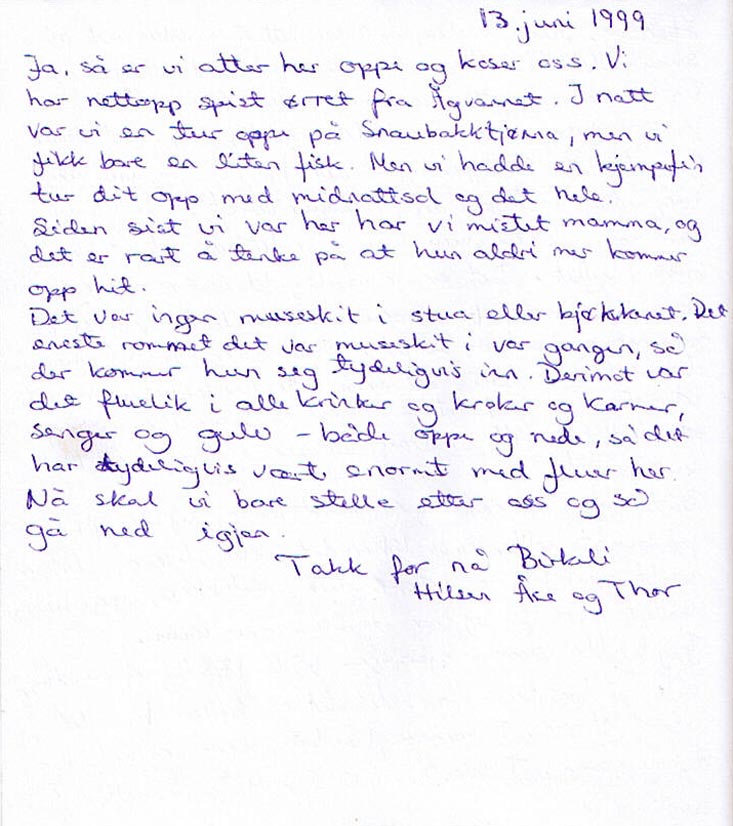 13. juni 1999
Ja, så er vi atter her oppe og koser oss. Vi
har nettopp spist ørret fra Ågvannet. I natt
var vi en tur oppe på Snaubakktjønna, men vi
fikk bare en liten fisk. Men vi hadde en kjempefin
tur dit opp med midnattsol og det hele.
Siden sist vi var her har vi mistet mamma, og
det er rart å tenke på at hun aldri mer kommer
opp hit.
Det var ingen museskit i stua eller kjøkkenet. Det
eneste rommet det var museskit i var gangen, så
der kommer hun seg tydeligvis inn. Derimot var
det fluelik i alle kriker og kroker og karmer,
senger og gulv – både oppe og nede, så det
har tydeligvis vært enormt med fluer her.
Nå skal vi bare stelle etter oss og så
gå ned igjen.
Takk for nå Birkeli
Hilsen Åse og Thor